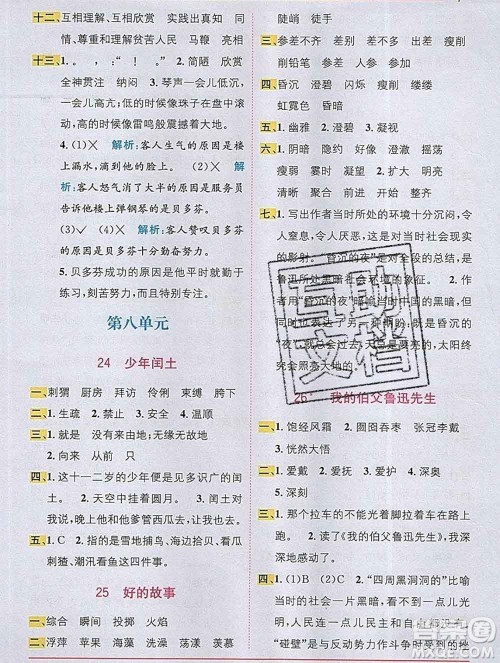 十二、互相理解、互相欣赏 实践出真知 同
情、尊重和理解贫苦人民 马鞭 亮相
十三、1. , ; “ ! 。” 2. 简陋 欣赏
全神贯注 纳闷 3. 琴声一会儿低沉,
一会儿高亢;低的时候像珠子在盘中滚
动,高的时候像雷鸣般震撼着大地。
4. (1)× 解析:客人生气的原因是楼
上漏水,滴到他的脸上。 (2)× 解
析:客人气消了大半的原因是服务员
告诉他楼上弹钢琴的是贝多芬。
(3)✓ (4)× 解析:客人赞叹贝多芬
的原因是贝多芬十分勤奋努力。
5. 贝多芬成功的原因是他平时就勤于
练习,刻苦努力,而不是天赋异禀。
第八单元
24 少年闰土
一、刺猬 厨房 拜访 伶俐 束缚 胯下
二、1. 生疏 2. 禁止 3. 安全 4. 顺滑
三、1. 就是 没有来由地;无缘无故地
2. 向来 从前 只
四、1. 这十一二岁的少年便是见多识广的闰
土。 2. 天空中挂着圆月。 3. 闰土对
我说,晚上他和他爹管西瓜去,让我也去。
五、1. C 2. 指的是雪地捕鸟、海边拾贝、看瓜
刺猹、潮汛看鱼这四件事。
25 好的故事
一、综合 瞬间 投掷 火焰
二、浮萍 苹果 海藻 洗澡 荡漾 羡慕
陡峭 徒手
三、1. 参差不齐 参加 差别 出差 瘦削
削铅笔 参差 差不多
四、1. 昏沉 澄碧 尽烬 瘦削 缕缕
虹霓色 昏暗
五、1. 幽雅 2. 澄碧 3. 凝视
六、1. 阴暗 隐约 好像 幽雅 摇荡
瘦弱 澄澈 凝望 2. 扩大 明亮
清晰 聚合 开始 整齐
七、1. 写出作者当时所处的环境十分沉闷,令
人窒息,令人厌恶,这是对当时社会现实
的影射。“昏沉的夜”是对全段的总结,是
鲁迅所处黑暗环境的象征。 2. 作
者用“昏沉的夜”暗指当时社会的黑暗,
太阳终
究会出来的。
26 我的伯父鲁迅先生
一、1. 饱经风霜 2. 囫囵吞枣 张冠李戴
3. 恍然大悟
二、1. 爱戴 2. 爱抚 3. 爱护 4. 深奥
5. 深刻
三、1. 那个拉车的不能光着脚拉着车在路上
跑。 2. 读了《我的伯父鲁迅先生》,我深
深地感动了。
四、1. (1)B (2)C 2. “四周黑洞洞的”比喻
当时社会一片黑暗,看不到一点儿光明,
人民连一点儿民主和自由都没有。
“碰壁”是与反动势力作斗争时受到的挫
互助文档
答案圈
MXQE.COM